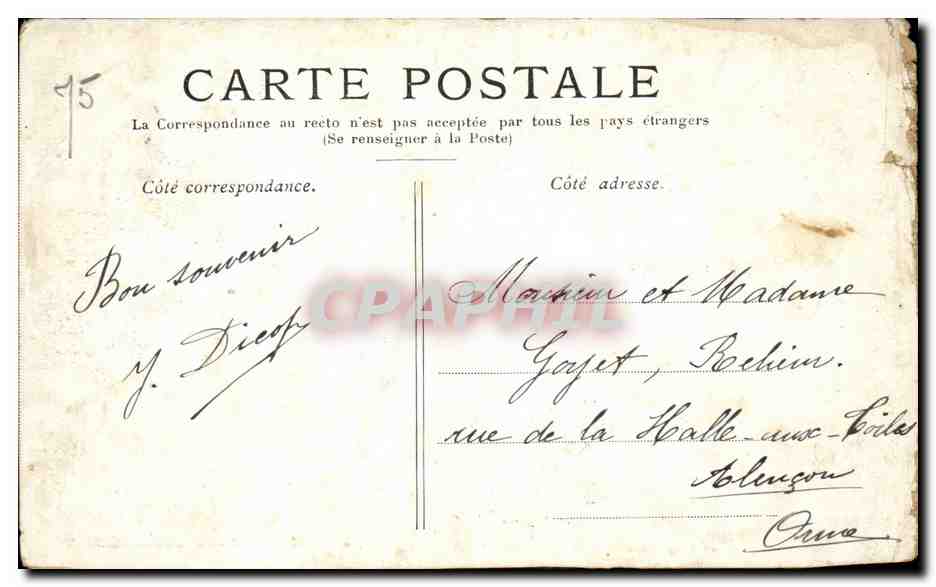 75
CARTE POSTALE
La Correspondance au recto n'est pas acceptée par tous les pays étrangers
(Se renseigner à la Poste)
Côté correspondance.
Côté adresse.
Bon souvenir
J.
CPAPHIL
Monsieur et Madame
Goyet, Relieur.
rue de la Halle-aux-Toiles
Alençon
Orne